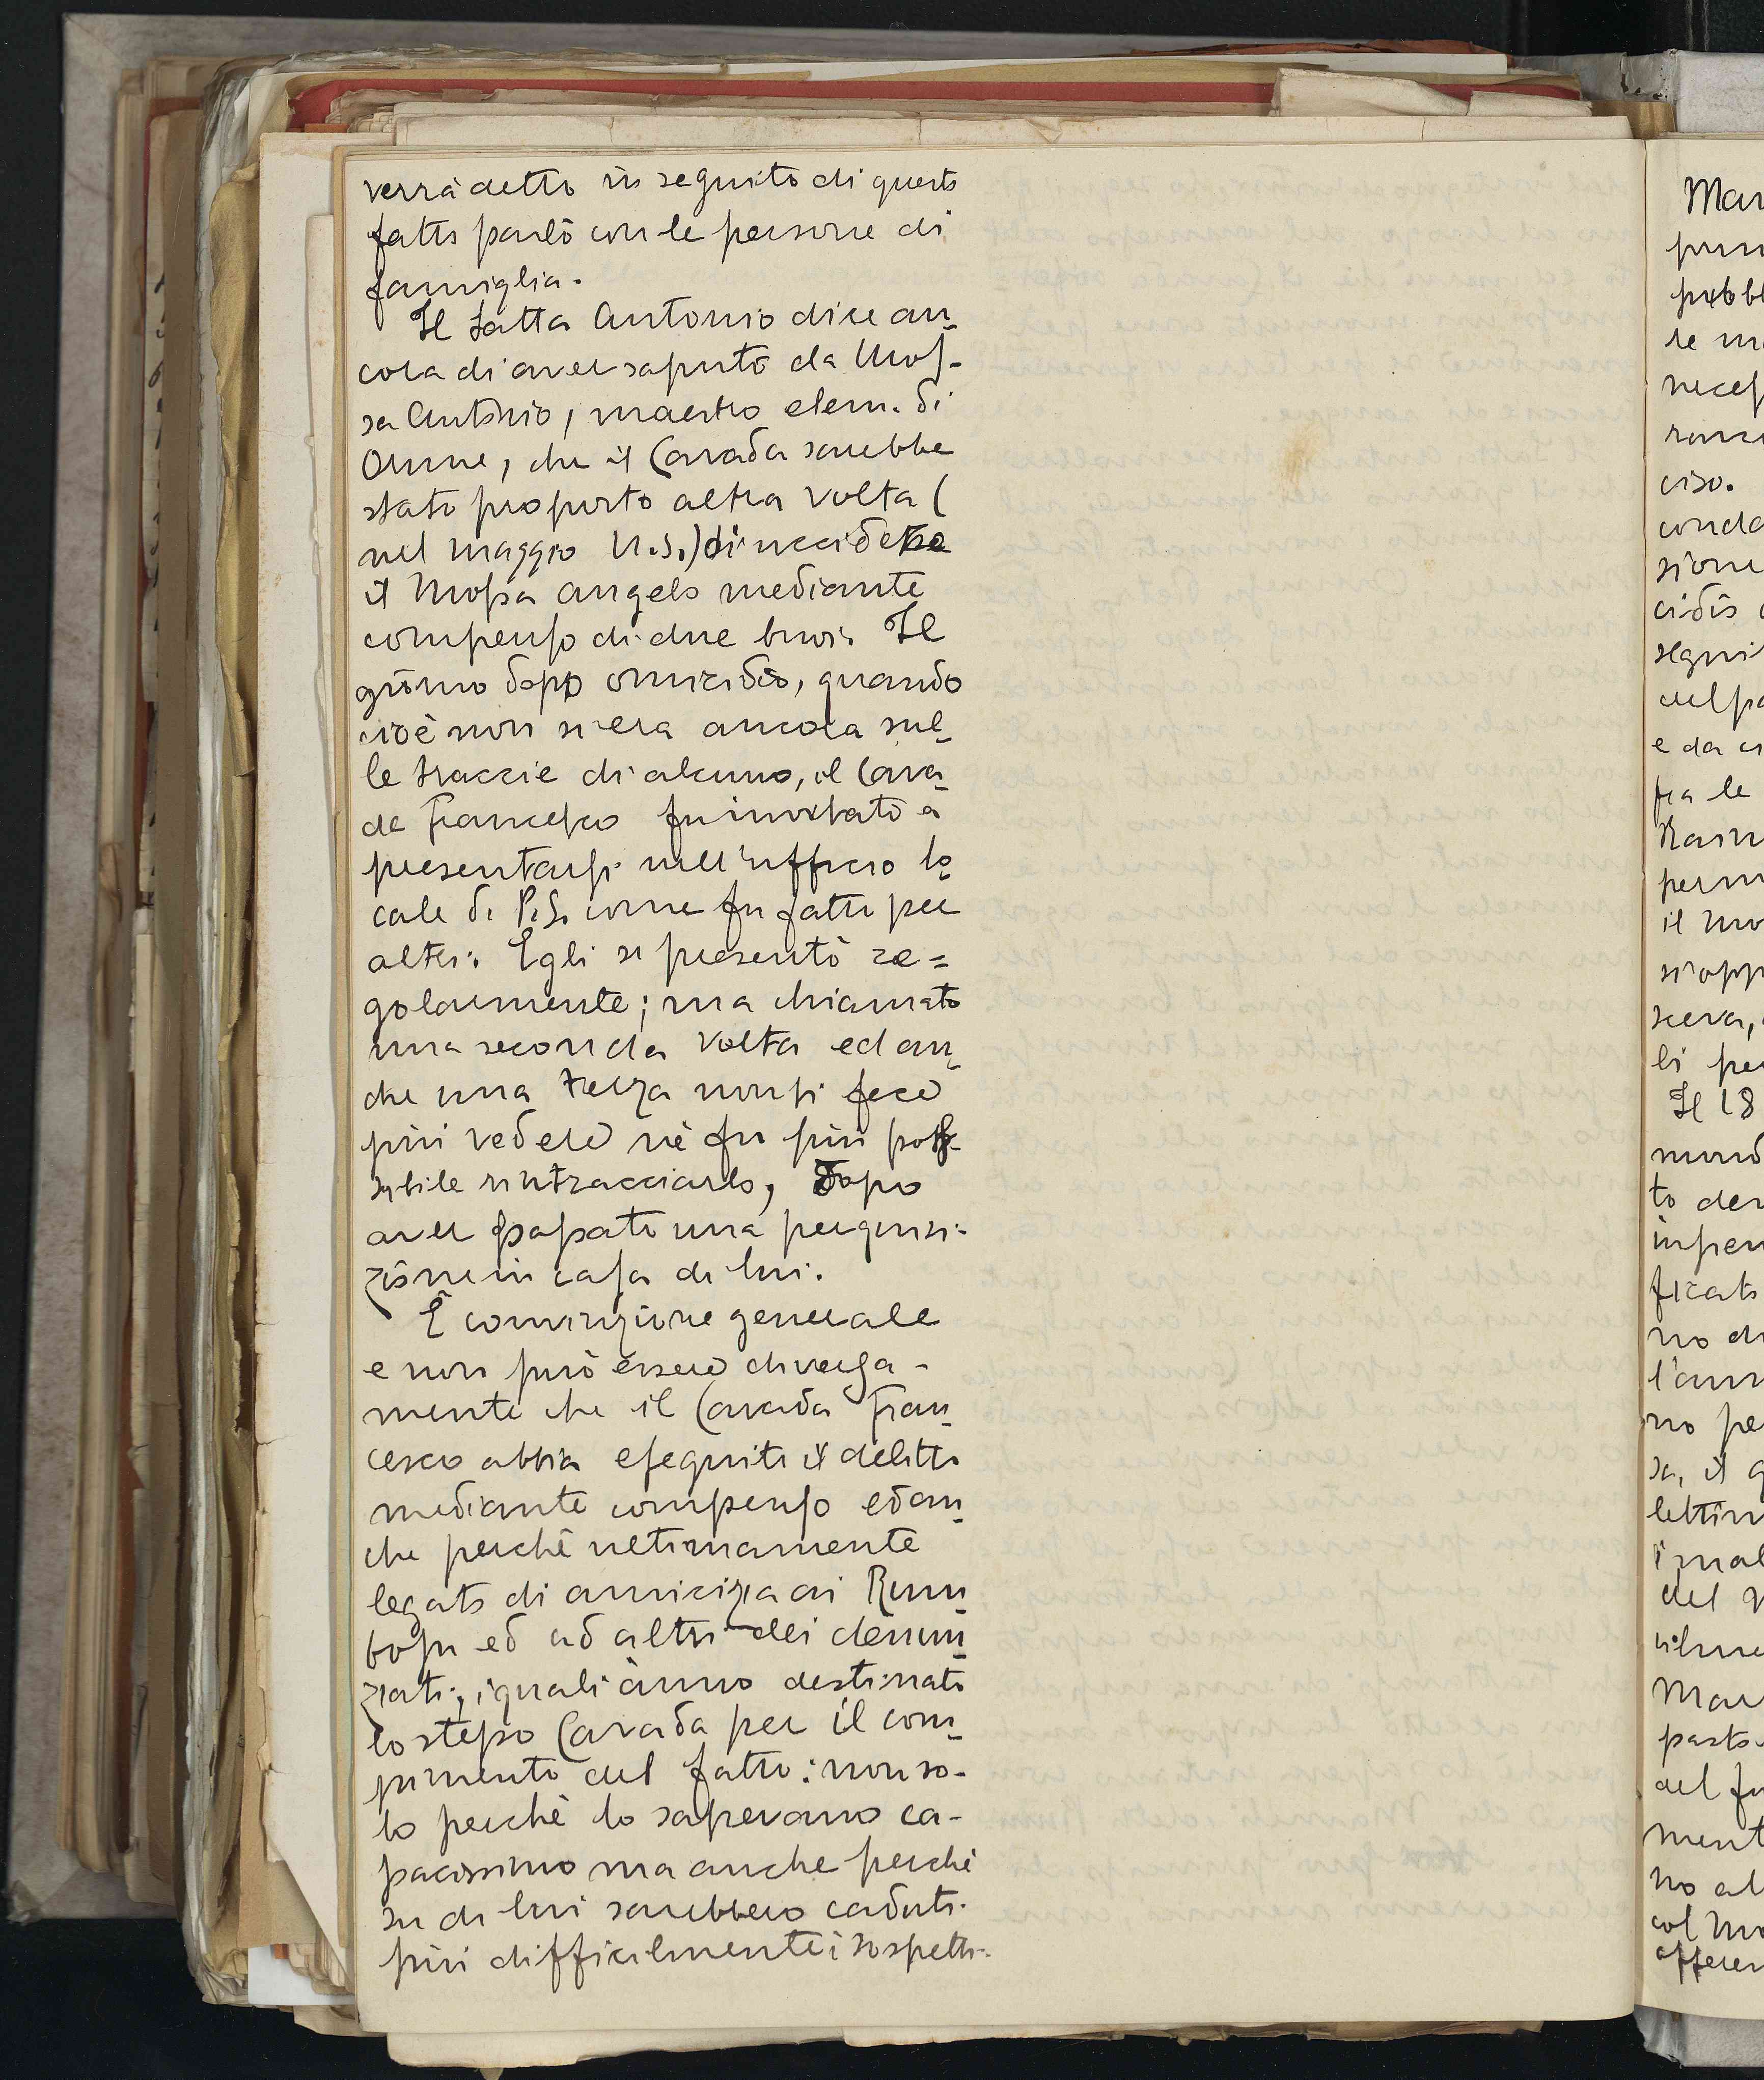 verrà detto in seguito di questo
fatto parlò con le persone di
famiglia.
Il Satta Antonio dice an_
cora di aver saputo da Mos-
sa Antonio, maestro elem. di
Orune, che il Carada sarebbe
stato proposto altra volta (
nel maggio u.s.) di uccidere
il Mossa Angelo mediante
compenso di due buoi. Il
giorno dopo omicidio, quando
cioè non si era ancora sul_
le traccie di alcuno, il Cara_
da Francesco fu invitato a
presentarsi nell'ufficio lo_
cale di P.S. come fu fatto per
altri. Egli si presentò re=
golarmente; ma chiamato
una seconda volta ed an_
che una terza non si fece
più vedere nè fu più pos-
sibile rintracciarlo, dopo
aver passato una perquisi-
zione in casa di lui.
È convinzione generale
e non può essere diversa-
mente che il Carada Fran_
cesco abbia eseguito il delitto
mediante compenso ed an_
che perchè ultimamente
legato di amicizia ai Rum_
bosu ed ad altri dei denun_
ziati, i quali ànno destinato
lo stesso Carada per il com_
pimento del fatto: non so-
lo perchè lo sapevano ca-
pacissimo ma anche perchè
su di lui sarebbero caduti
più difficilmente i sospetti.
Mar
pun
pubbl
re m
necess
ranc
ciso.
conda
sione
cidio
segui
del pa
e da
fra le
Raim
perm
il Mo
si opp
sceva,
li pe
Il 18
mund
to den
insiem
ficato
no di
l'ann
no pe
sa, il q
lettim
i mal
del
ilme
Mar
parto
del fu
ment
no al
col Mo
offeren